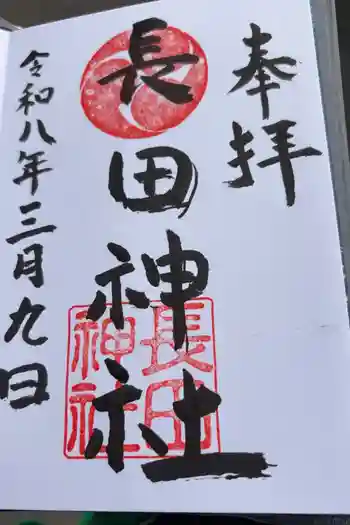 奉拝
長田神社
長田
神社
令和八年三月九日